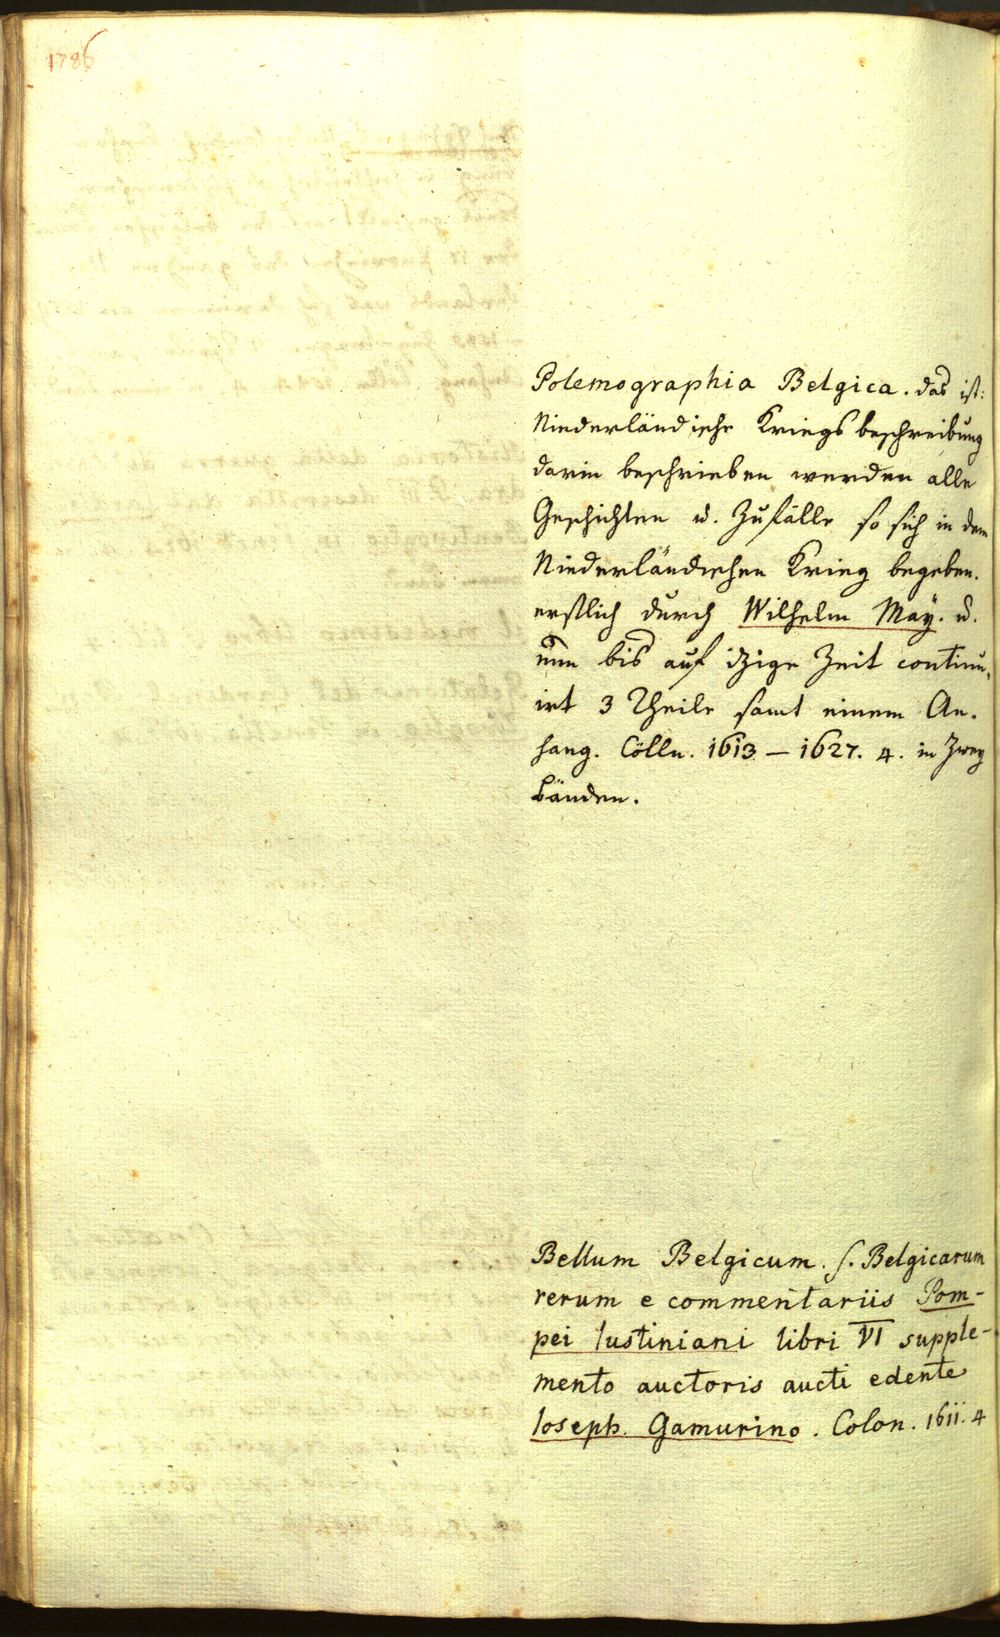 1786
Polemographia Belgica. das ist:
Niederländische Kriegs beschreibung
darin beschrieben werden alle
Geschichten u. Zufälle so sich in dem
Niederländischen Krieg begeben.
erstlich durch Wilhelm May. u.
nun bis auf izige Zeit continu-
irt 3 Theile samt einem An-
hang. Cölln. 1613 – 1627. 4. in zwey
bänden.
Bellum Belgicum. s. Belgicarum
rerum e commentariis Pom-
pei Iustiniani libri VI supple-
mento auctoris aucti edente
Ioseph. Gamurino. Colon. 1611. 4